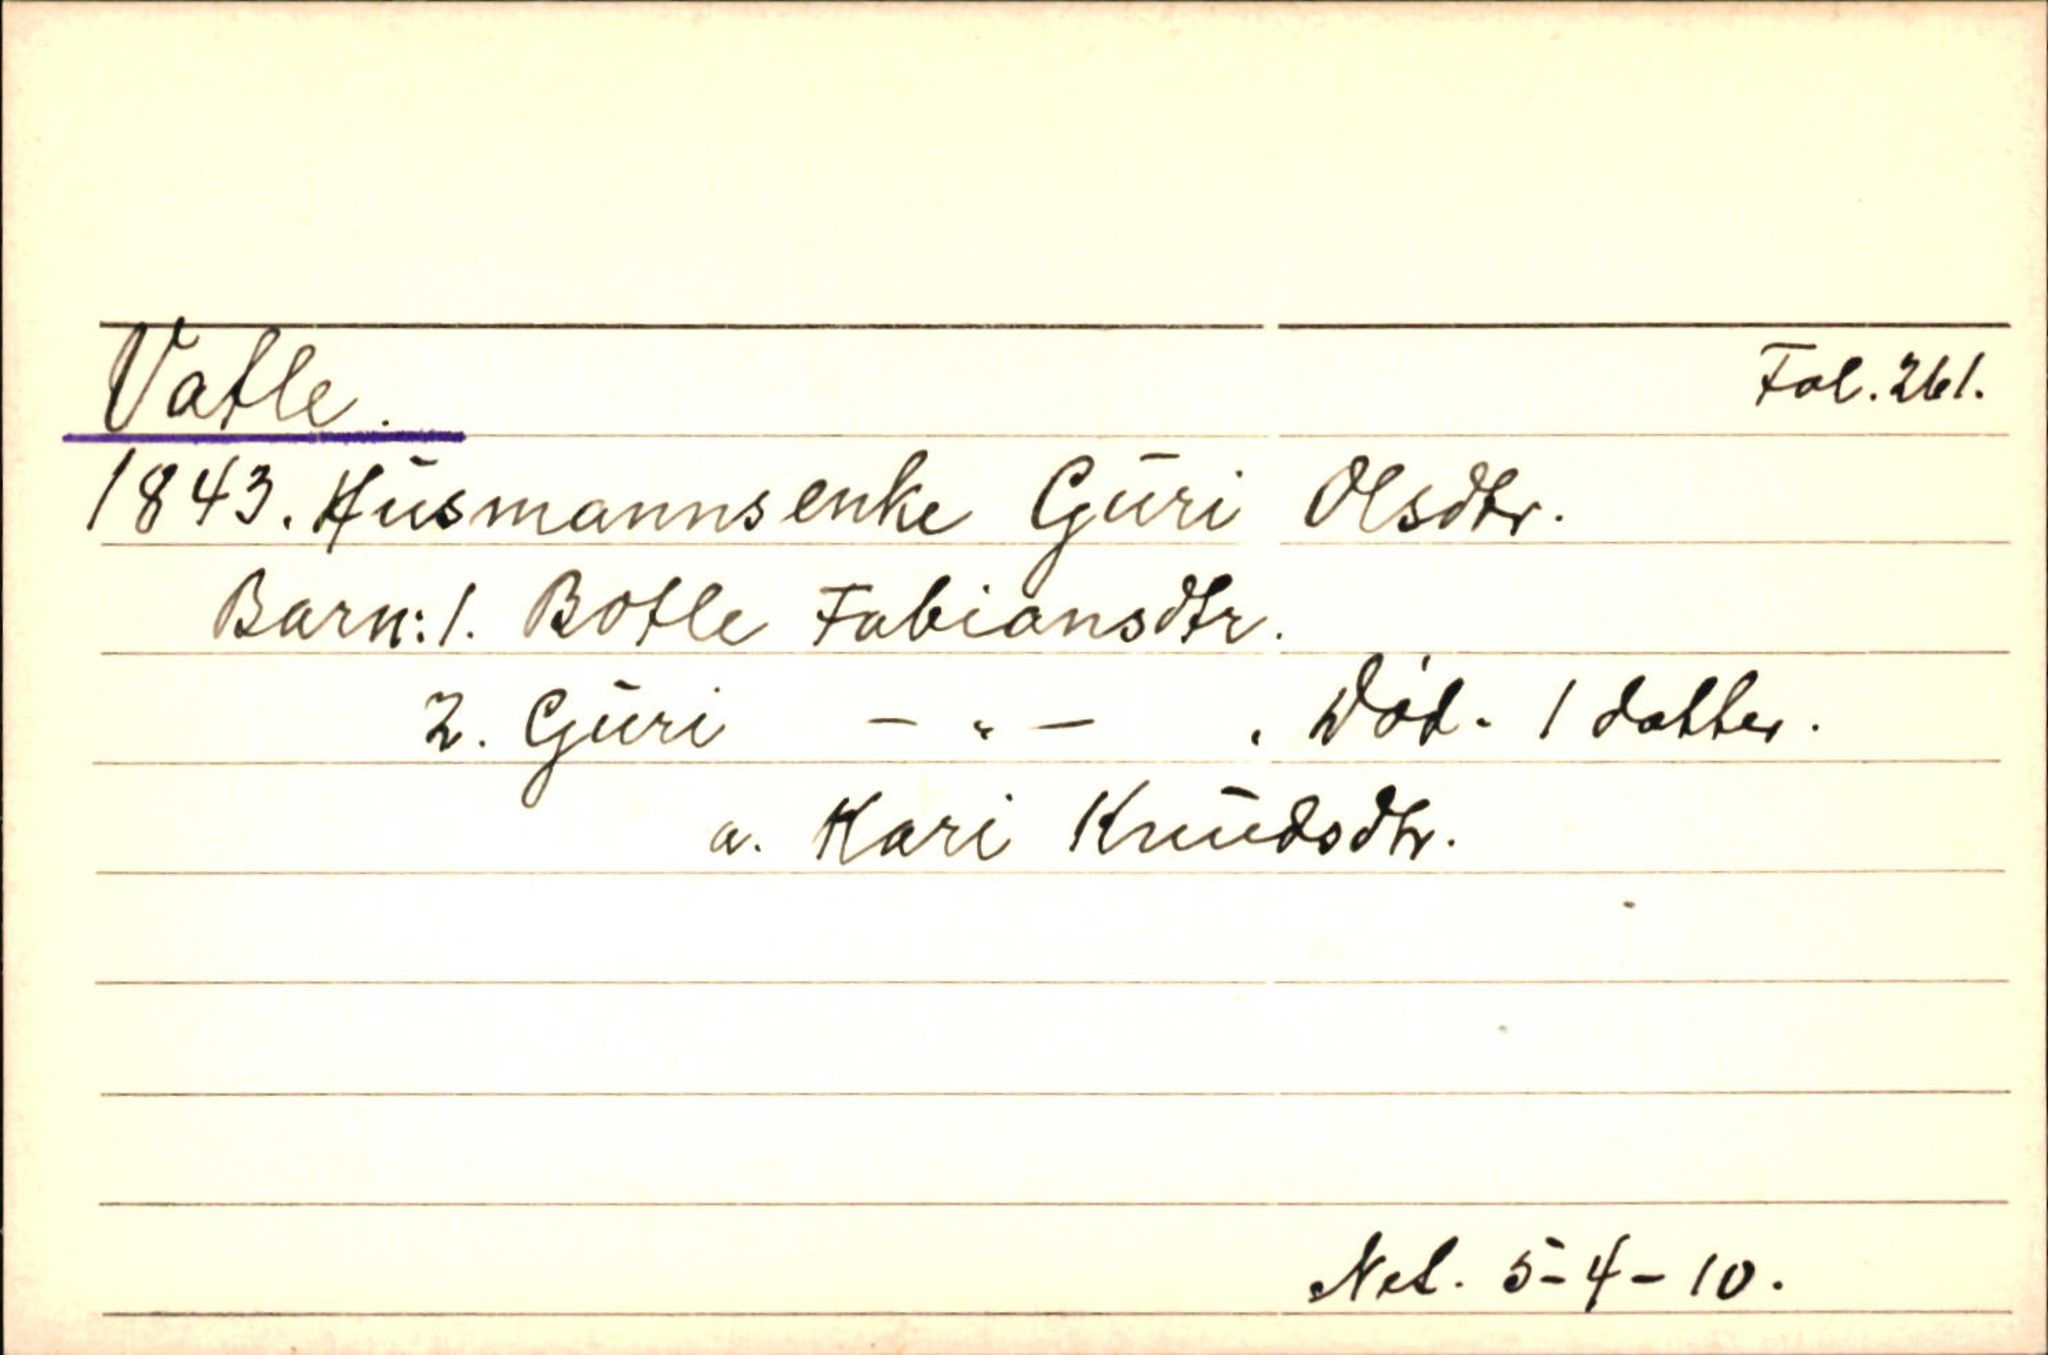 Vatle. Fol. 261.
1843. Husmannsenke Guri Olsdtr.
Barn: 1. Botle Fabiansdtr.
2. Guri – " – . Död. 1 datter.
a. Kari Knudsdtr.
Net. 5-4-10.